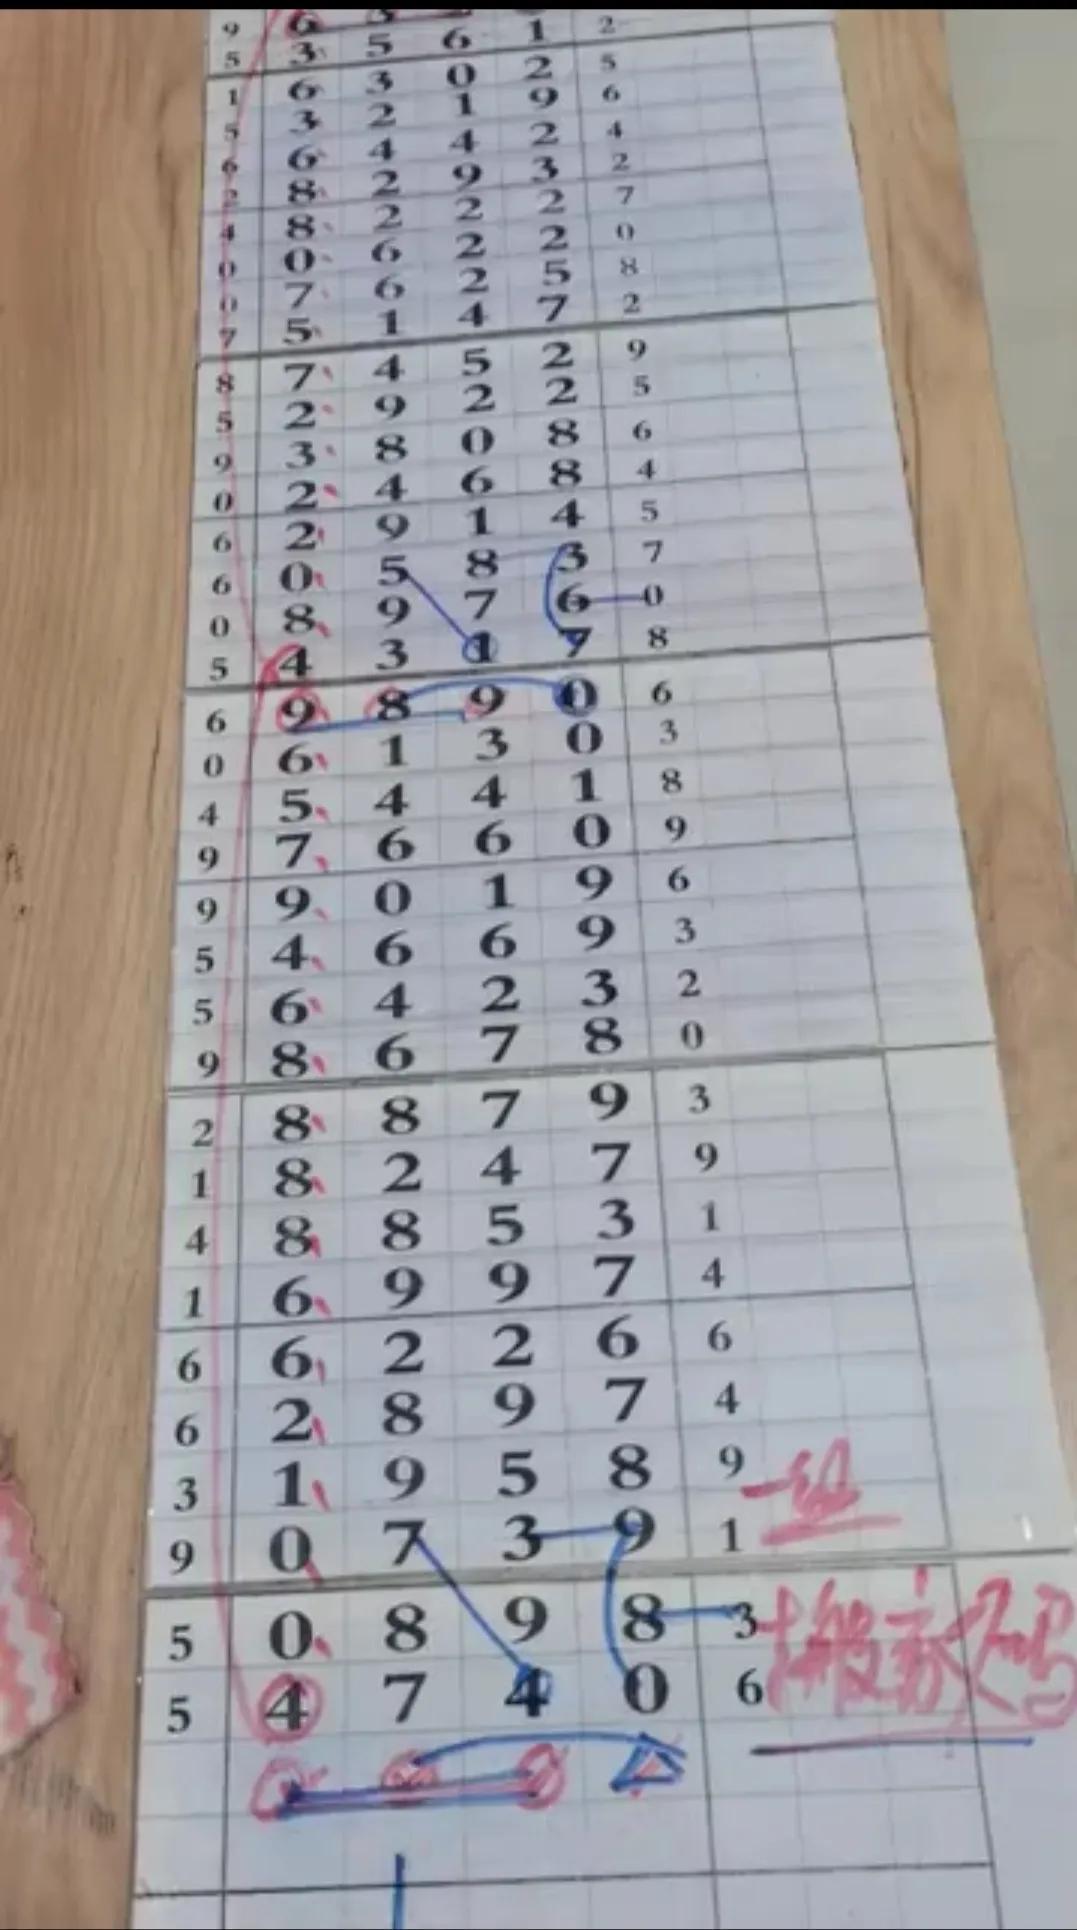 5 3 5 6 1 2
1 6 3 0 2 5
5 3 2 1 9 6
6 6 4 4 2 4
2 8 2 9 3 2
4 8 2 2 2 7
0 0 6 2 2 0
0 7 6 2 5 8
7 5 1 4 7 2
8 7 4 5 2 9
5 2 9 2 2 5
9 3 8 0 8 6
0 2 4 6 8 4
6 2 9 1 4 5
6 0 5 8 3 7
0 8 9 7 6 0
5 4 3 1 7 8
6 9 8 9 0 6
0 6 1 3 0 3
4 5 4 4 1 8
9 7 6 6 0 9
9 9 0 1 9 6
5 4 6 6 9 3
5 6 4 2 3 2
9 8 6 7 8 0
2 8 8 7 9 3
1 8 2 4 7 9
4 8 8 5 3 1
1 6 9 9 7 4
6 6 2 2 6 6
6 2 8 9 7 4
3 1 9 5 8 9 一组
9 0 7 3 9 1
5 0 8 9 8 3
5 4 7 4 0 6